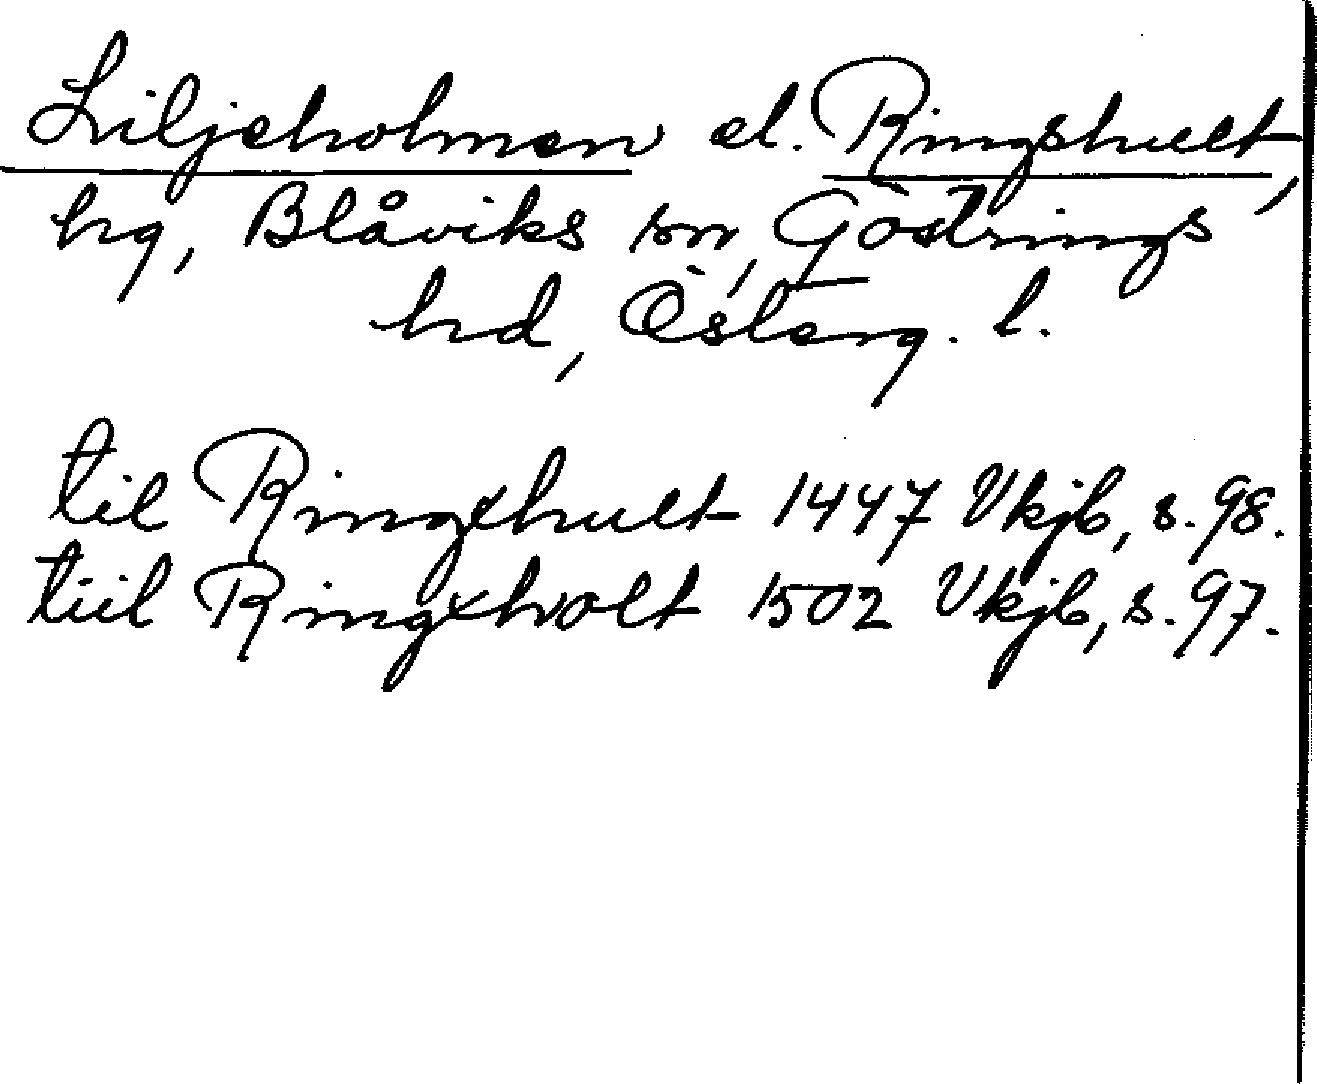 Liljeholmen el. Ringshult,
hg, Blåviks sn, Göstrings
hd, Österg. l.
til Ringxhult 1447 Vkjb, s. 98.
tiil Ringxholt 1502 Vkjb, s. 97.